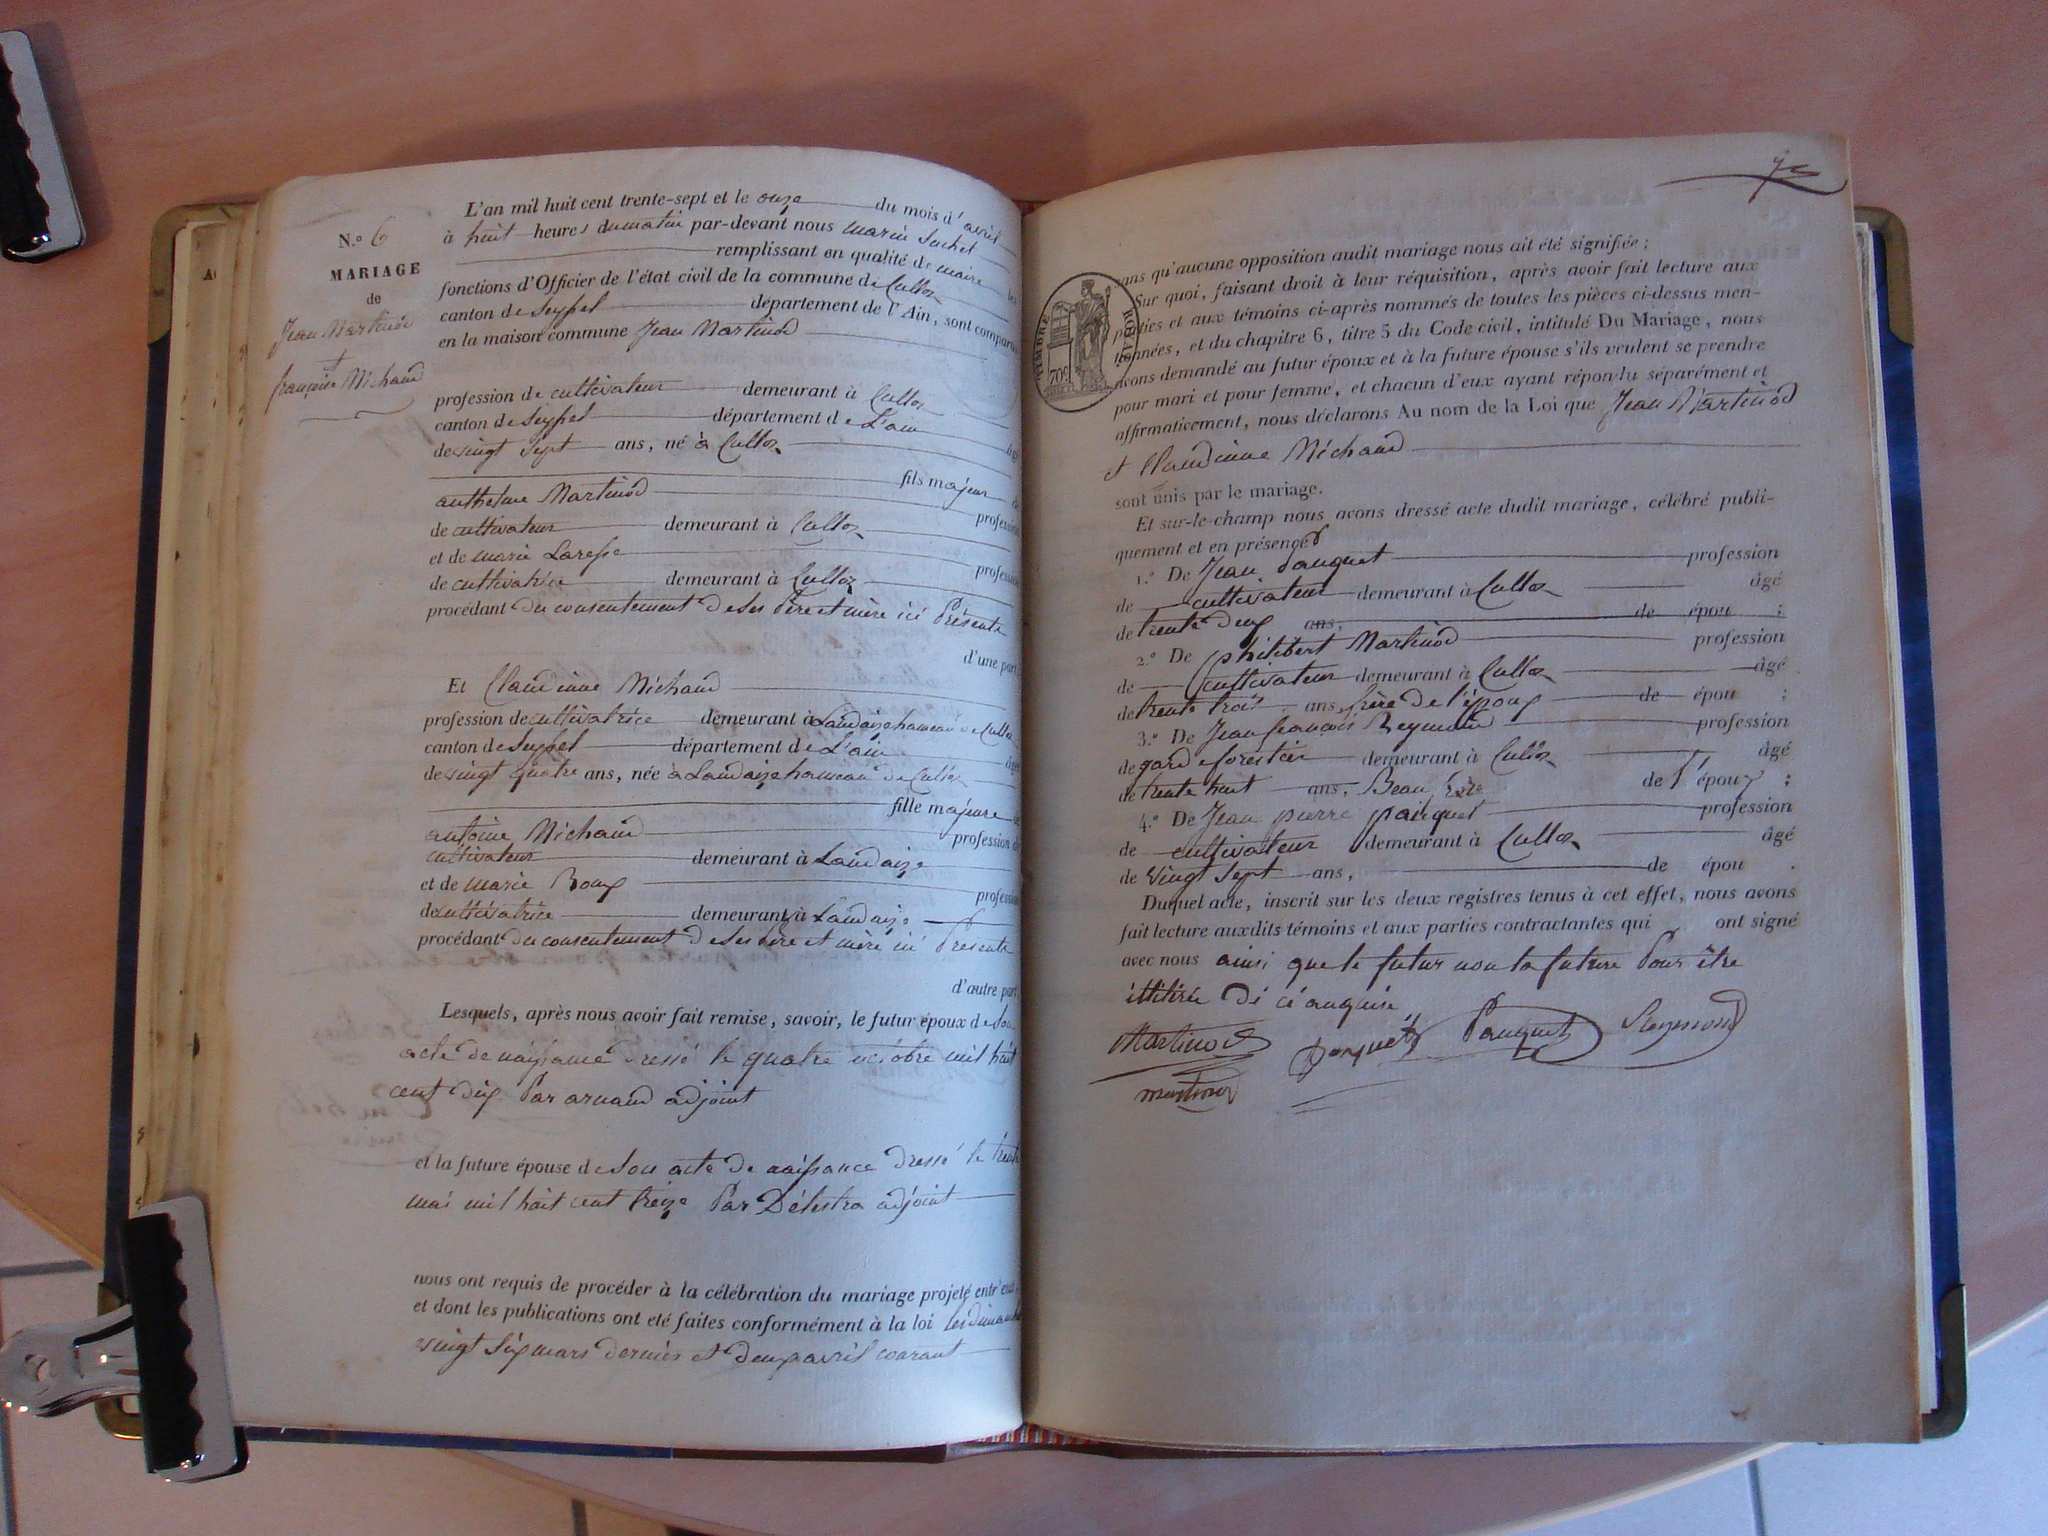 N.o 6
MARIAGE
de
Jean Martinod
et
françoise Michaud
L'an mil huit cent trente-sept et le onze du mois d'avril
à huit heures du matin par-devant nous marin Suchet
remplissant en qualité de maire les
fonctions d'Officier de l'état civil de la commune de Culloz
canton de Seyssel département de l'Ain, sont comparus
en la maison commune Jean Martinod
profession de cultivateur demeurant à Culloz
canton de Seyssel département de L'ain
de vingt sept ans, né à Culloz
fils majeur
anthelme Martinod profession
de cultivateur demeurant à Culloz
et de marie Laresse profession
de cultivatrice demeurant à Culloz
procédant du consentement de ses Père et mère ici Présents
d'une part,
Et Claudinne Michaud
profession de cultivatrice demeurant à Landaize hameau de Culloz
canton de Seyssel département de L'ain âgé
de vingt quatre ans, née à Landaize hameau de Culloz
fille majeure de
antoine Michaud profession de
cultivateur demeurant à Landaize
et de marie Roux profession
de cultivatrice demeurant à Landaize
procédant du consentement de ses Père et mère ici Présents
d'autre part,
Lesquels, après nous avoir fait remise, savoir, le futur époux de son
acte de naissance dressé le quatre octobre mil huit
cent dix Par arnaud adjoint
et la future épouse de son acte de naissance dressé le trente
mai mil huit cent treize Par Délestra adjoint
nous ont requis de procéder à la célébration du mariage projeté entr'eux,
et dont les publications ont été faites conformément à la loi les dimanches
vingt six mars dernier et deux avril courant
TIMBRE ROYAL
70c
sans qu'aucune opposition audit mariage nous ait été signifiée ;
Sur quoi, faisant droit à leur réquisition, après avoir fait lecture aux
parties et aux témoins ci-après nommés de toutes les pièces ci-dessus men-
tionnées, et du chapitre 6, titre 5 du Code civil, intitulé Du Mariage, nous
avons demandé au futur époux et à la future épouse s'ils veulent se prendre
pour mari et pour femme, et chacun d'eux ayant répondu séparément et
affirmativement, nous déclarons Au nom de la Loi que Jean Martinod
et Claudinne Michaud
sont unis par le mariage.
Et sur-le-champ nous avons dressé acte dudit mariage, célébré publi-
quement et en présence
1.o De Jean Pauquet profession
de cultivateur demeurant à Culloz âgé
de trente deux ans, de épou ;
2.o De philibert Martinod profession
de cultivateur demeurant à Culloz âgé
de trente trois ans, frère de l'époux de épou ;
3.o De Jean françois Reymond profession
de garde forestier demeurant à Culloz âgé
de trente huit ans, Beau frère de l'époux ;
4.o De Jean pierre pauquet profession
de cultivateur demeurant à Culloz âgé
de vingt sept ans, de épou .
Duquel acte, inscrit sur les deux registres tenus à cet effet, nous avons
fait lecture auxdits témoins et aux parties contractantes qui ont signé
avec nous ainsi que le futur non la future Pour être
illitirée de ce anquise
Martinod Pauquet Pauquet Reymond
martinod